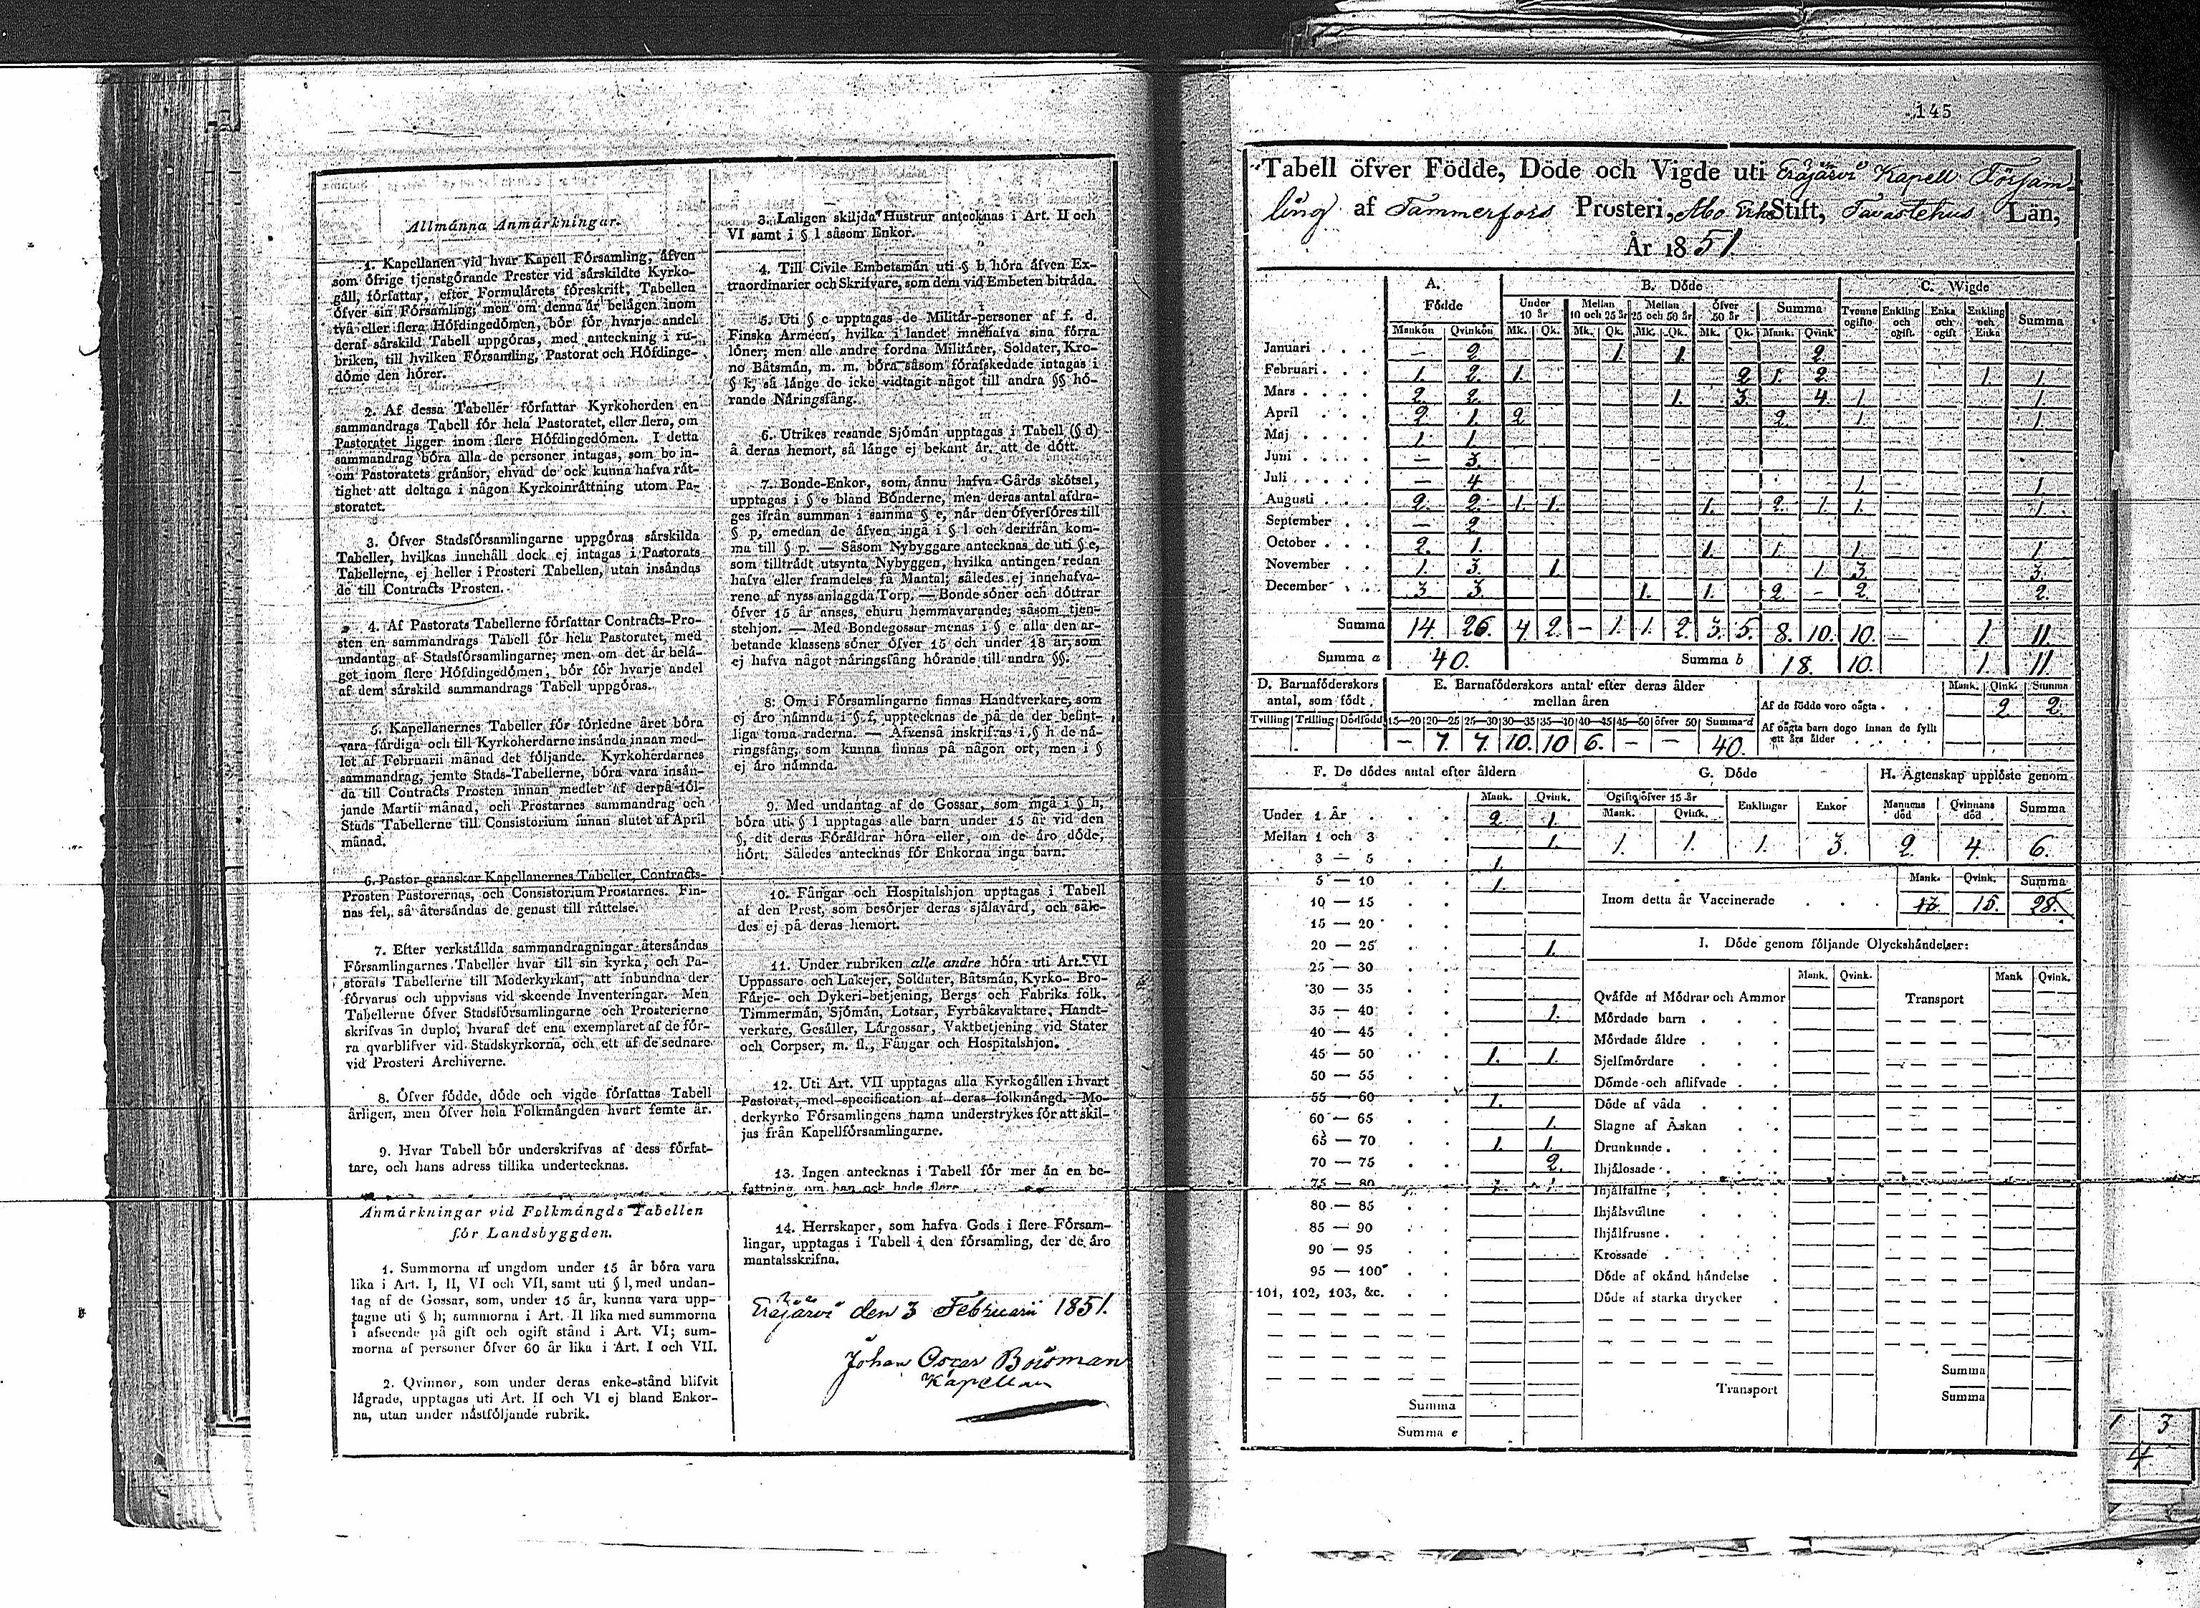 Allmänna Anmärkningar.
1. Kapellanen vid hvar Kapell Församling, äfven
som öfrige tjenstgörande Prester vid särskildte Kyrko-
gäll, författar, efter Formulärets föreskrift, Tabellen
öfver sin Församling; men om denna är belägen inom
två eller flera Höfdingedömen, bör för hvarje andel
deraf särskild Tabell uppgöras, med anteckning i ru-
briken, till hvilken Församling, Pastorat och Höfdinge-
döme den hörer.
2. Af dessa Tabeller författar Kyrkoherden en
sammandrags Tabell för hela Pastoratet, eller flera, om
Pastoratet ligger inom flere Höfdingedömen. I detta
sammandrag böra alla de personer intagas, som bo in-
om Pastoratets gränsor, ehvad de ock kunna hafva rät-
tighet att deltaga i någon Kyrkoinrättning utom Pa-
storatet.
3. Öfver Stadsförsamlingarne uppgöras särskilda
Tabeller, hvilkas innehåll dock ej intagas i Pastorats
Tabellerne, ej heller i Prosteri Tabellen, utan insändas
de till Contracts Prosten.
4. Af Pastorats Tabellerne författar Contracts-Pro-
sten en sammandrags Tabell för hela Pastoratet, med
undantag af Stadsförsamlingarne; men om det är belä-
get inom flere Höfdingedömen, bör för hvarje andel
af dem särskild sammandrags Tabell uppgöras.
5. Kapellanernes Tabeller för förledne året böra
vara färdiga och till Kyrkoherdarne insända innan med-
let af Februarii månad det följande. Kyrkoherdarnes
sammandrag, jemte Stads-Tabellerne, böra vara insän-
da till Contracts Prosten innan medlet af derpå föl-
jande Martii månad, och Prostarnes sammandrag och
Stads Tabellerne till Consistorium innan slutet af April
månad.
6. Pastor granskar Kapellanernes Tabeller, Contracts-
Prosten Pastorernas, och Consistorium Prostarnes. Fin-
nas fel, så återsändas de genast till rättelse.
7. Efter verkställda sammandragningar återsändas
Församlingarnes Tabeller hvar till sin kyrka, och Pa-
storats Tabellerne till Moderkyrkan, att inbundna der
förvaras och uppvisas vid skeende Inventeringar. Men
Tabellerne öfver Stadsförsamlingarne och Prosterierne
skrifvas in duplo, hvaraf det ena exemplaret af de för-
ra qvarblifver vid Stadskyrkorna, och ett af de sednare
vid Prosteri Archiverne.
8. Öfver födde, döde och vigde författas Tabell
årligen, men öfver hela Folkmängden hvart femte år.
9. Hvar Tabell bör underskrifvas af dess förfat-
tare, och hans adress tillika undertecknas.
Anmärkningar vid Folkmängds Tabellen
för Landsbyggden.
1. Summorna af ungdom under 15 år böra vara
lika i Art. I, II, VI och VII, samt uti § l, med undan-
tag af de Gossar, som, under 15 år, kunna vara upp-
tagne uti § h; summorna i Art. II lika med summorna
i afseende på gift och ogift stånd i Art. VI; sum-
morna af personer öfver 60 år lika i Art. I och VII.
2. Qvinnor, som under deras enke-stånd blifvit
lägrade, upptagas uti Art. II och VI ej bland Enkor-
na, utan under nästföljande rubrik.
3. Laligen skiljda Hustrur antecknas i Art. II och
VI samt i § l såsom Enkor.
4. Till Civile Embetsmän uti § b höra äfven Ex-
traordinarier och Skrifvare, som dem vid Embeten biträda.
5. Uti § c upptagas de Militär-personer af f. d.
Finska Arméen, hvilka i landet innehafva sina förra
löner; men alle andre fordna Militärer, Soldater, Kro-
no Båtsmän, m. m. böra såsom förafskedade intagas i
§ k, så länge de icke vidtagit något till andra §§ hö-
rande Näringsfång.
6. Utrikes resande Sjömän upptagas i Tabell (§ d)
å deras hemort, så länge ej bekant är, att de dött.
7. Bonde-Enkor, som ännu hafva Gårds skötsel,
upptagas i § e bland Bönderne, men deras antal afdra-
ges ifrån summan i samma § e, när den öfverföres till
§ p, emedan de äfven ingå i § l och derifrån kom-
ma till § p. — Såsom Nybyggare antecknas de uti § e,
som tillträdt utsynta Nybyggen, hvilka antingen redan
hafva eller framdeles få Mantal; således ej innehafva-
rene af nyss anlaggda Torp. — Bonde söner och döttrar
öfver 15 år anses, ehuru hemmavarande, såsom tjen-
stehjon. — Med Bondegossar menas i § e alla den ar-
betande klassens söner öfver 15 och under 18 år, som
ej hafva något näringsfång hörande till andra §§.
8. Om i Församlingarne finnas Handtverkare, som
ej äro nämnda i § f, upptecknas de på de der befint-
liga toma raderna. — Afvenså inskrifvas i § h de nä-
ringsfång, som kunna finnas på någon ort, men i §
ej äro nämnda.
9. Med undantag af de Gossar, som ingå i § h,
böra uti § l upptagas alle barn under 15 år vid den
§, dit deras Föräldrar höra eller, om de äro döde,
hört. Således antecknas för Enkorna inga barn.
10. Fångar och Hospitalshjon upptagas i Tabell
af den Prest, som besörjer deras själavård, och såle-
des ej på deras hemort.
11. Under rubriken alle andre höra uti Art. VI
Uppassare och Lakejer, Soldater, Båtsmän, Kyrko- Bro-
Färje- och Dykeri-betjening, Bergs och Fabriks folk,
Timmermän, Sjömän, Lotsar, Fyrbåksvaktare, Handt-
verkare, Gesäller, Lärgossar, Vaktbetjening vid Stater
och Corpser, m. fl., Fångar och Hospitalshjon.
12. Uti Art. VII upptagas alla Kyrkogällen i hvart
Pastorat, med specification af deras folkmängd. Mo-
derkyrko Församlingens namn understrykes för att skil-
jas från Kapellförsamlingarne.
13. Ingen antecknas i Tabell för mer än en be-
fattning, om han ock hade flere.
14. Herrskaper, som hafva Gods i flere Försam-
lingar, upptagas i Tabell i den församling, der de äro
mantalsskrifna.
Eräjärvi den 3 Februarii 1851.
Johan Oscar Boisman
Kapellan
145
Tabell öfver Födde, Döde och Vigde uti Eräjärvi Kapell Försam-
ling af Tammerfors Prosteri, Åbo Erke Stift, Tavastehus Län,
År 1851.
A. Födde B. Döde C. Wigde
Under 10 år Mellan 10 och 25 år Mellan 25 och 50 år Öfver 50 år Summa Tvenne ogifte Enkling och ogift. Enka och ogift Enkling och Enka Summa
Mankön Qvinkön Mk. Qk. Mk. Qk. Mk. Qk. Mk. Qk. Mank. Qvink
Januari — 2 1. 1. 2
Februari 1. 2. 1. 2 1. 2 1. 1.
Mars 2. 2. 1. 3. 4. 1. 1.
April 2. 1. 2 2. 1. 1.
Maj 1. 1.
Juni — 3.
Juli — 4 1. 1.
Augusti 2. 2. 1. 1. 1. 2. 1. 1. 1
September — 2
October 2. 1. 1. 1. 1. 1.
November 1. 3. 1. 1. 3. 3.
December 3 3. 1. 1. 2 - 2. 2.
Summa 14. 26. 4. 2. — 1. 1. 2. 3. 5. 8. 10. 10. — 1. 11.
Summa a 40. Summa b 18. 10. 1. 11.
D. Barnaföderskors antal, som födt
Tvilling Trilling Dödfödd
E. Barnaföderskors antal efter deras ålder mellan åren
15—20 20—25 25—30 30—35 35—40 40—45 45—50 öfver 50 Summa d
— 7. 7. 10. 10 6. — — 40.
Mank. Qink. Summa
Af de födda voro oägta 2. 2.
Af oägta barn dogo innan de fyllt
ett års ålder
F. De dödes antal efter åldern
Mank. Qvink.
Under 1 År 2. 1.
Mellan 1 och 3 1.
3 — 5 1.
5 — 10 1.
10 — 15
15 — 20
20 — 25 1.
25 — 30
30 — 35
35 — 40 1.
40 — 45
45 — 50 1. 1.
50 — 55
55 — 60 1.
60 — 65 1.
65 — 70 1. 1.
70 — 75 2.
75 — 80 1.
80 — 85
85 — 90
90 — 95
95 — 100
101, 102, 103, &c.
Summa
Summa e
G. Döde
Ogifta öfver 15 år Enklingar Enkor
Mank. Qvink.
1. 1. 1. 3.
H. Ägtenskap upplöste genom
Mannens död Qvinnans död Summa
2. 4. 6.
Mank. Qvink. Summa
Inom detta år Vaccinerade 13. 15. 28.
I. Döde genom följande Olyckshändelser:
Mank. Qvink. Mank Qvink.
Qväfde af Mödrar och Ammor Transport
Mördade barn
Mördade äldre
Sjelfmördare
Dömde och aflifvade
Döde af våda
Slagne af Åskan
Drunknade
Ihjälosade
Ihjälfallne
Ihjälsvultne
Ihjälfrusne
Krossade
Döde af okänd händelse
Döde af starka drycker
Summa
Transport Summa
1 3
4